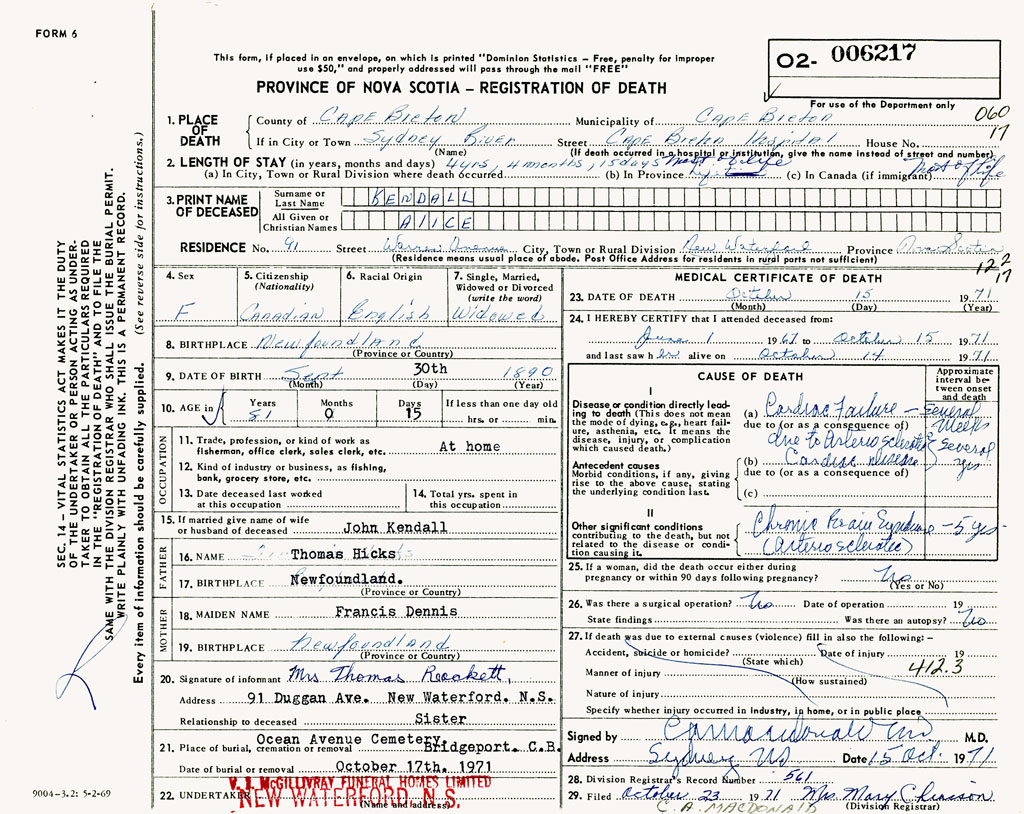 FORM 6
This form, if placed in an envelope, on which is printed "Dominion Statistics – Free, penalty for improper
use $50," and properly addressed will pass through the mail "FREE"
PROVINCE OF NOVA SCOTIA – REGISTRATION OF DEATH
O2- 006217
For use of the Department only
060
17
SEC. 14 – VITAL STATISTICS ACT MAKES IT THE DUTY
OF THE UNDERTAKER OR PERSON ACTING AS UNDER-
TAKER TO OBTAIN ALL THE PARTICULARS REQUIRED
IN THE "REGISTRATION OF DEATH" AND TO FILE THE
SAME WITH THE DIVISION REGISTRAR WHO SHALL ISSUE THE BURIAL PERMIT.
WRITE PLAINLY WITH UNFADING INK. THIS IS A PERMANENT RECORD.
Every item of Information should be carefully supplied. (See reverse side for instructions.)
1. PLACE OF DEATH
County of Cape Breton Municipality of Cape Breton
If in City or Town Sydney River Street Cape Breton Hospital House No.
(Name) (If death occurred in a hospital or institution, give the name instead of street and number)
2. LENGTH OF STAY (in years, months and days) 4 yrs, 4 months, 15 days most of life
(a) In City, Town or Rural Division where death occurred (b) In Province (c) In Canada (if immigrant) most of life
3. PRINT NAME OF DECEASED
Surname or Last Name KENDALL
All Given or Christian Names ALICE
RESIDENCE No. 91 Street Warren Avenue City, Town or Rural Division New Waterford Province Nova Scotia
(Residence means usual place of abode. Post Office Address for residents in rural parts not sufficient)
122
17
4. Sex
F
5. Citizenship (Nationality)
Canadian
6. Racial Origin
English
7. Single, Married, Widowed or Divorced (write the word)
Widowed
8. BIRTHPLACE Newfoundland
(Province or Country)
9. DATE OF BIRTH Sept 30th 1890
(Month) (Day) (Year)
10. AGE in Years Months Days If less than one day old
81 0 15 hrs. or min.
OCCUPATION
11. Trade, profession, or kind of work as
fisherman, office clerk, sales clerk, etc. At home
12. Kind of industry or business, as fishing,
bank, grocery store, etc.
13. Date deceased last worked
at this occupation
14. Total yrs. spent in
this occupation
15. If married give name of wife
or husband of deceased John Kendall
FATHER
16. NAME Thomas Hicks
17. BIRTHPLACE Newfoundland.
(Province or Country)
MOTHER
18. MAIDEN NAME Francis Dennis
19. BIRTHPLACE Newfoundland
(Province or Country)
20. Signature of informant Mrs Thomas Rockett,
Address 91 Duggan Ave. New Waterford. N.S.
Relationship to deceased Sister
21. Place of burial, cremation or removal Ocean Avenue Cemetery. Bridgeport. C.B.
Date of burial or removal October 17th. 1971
22. UNDERTAKER V. J. McGILLIVRAY FUNERAL HOMES LIMITED
NEW WATERFORD, N.S.
(Name and address)
9004-3.2: 5-2-69
MEDICAL CERTIFICATE OF DEATH
23. DATE OF DEATH October 15 1971
(Month) (Day) (Year)
24. I HEREBY CERTIFY that I attended deceased from:
June 1 1967 to October 15 1971
and last saw her alive on October 14 1971
CAUSE OF DEATH
Approximate interval between onset and death
I
Disease or condition directly lead-
ing to death (This does not mean
the mode of dying, e.g., heart fail-
ure, asthenia, etc. It means the
disease, injury, or complication
which caused death.)
(a) Cardiac Failure – several weeks
due to (or as a consequence of)
due to Arteriosclerotic
Antecedent causes
Morbid conditions, if any, giving
rise to the above cause, stating
the underlying condition last.
(b) Cardiac disease several yrs
due to (or as a consequence of)
(c)
II
Other significant conditions
contributing to the death, but not
related to the disease or condi-
tion causing it.
Chronic Brain Syndrome – 5 yrs
(Arteriosclerotic)
25. If a woman, did the death occur either during
pregnancy or within 90 days following pregnancy? No
(Yes or No)
26. Was there a surgical operation? No Date of operation 19
State findings Was there an autopsy? No
27. If death was due to external causes (violence) fill in also the following: –
Accident, suicide or homicide? Date of injury 19
(State which)
Manner of injury 412.3
(How sustained)
Nature of injury
Specify whether injury occurred in industry, in home, or in public place
Signed by C A MacDonald MD M.D.
Address Sydney NS Date 15 Oct 1971
28. Division Registrar's Record Number 561
29. Filed October 23 1971 Mrs Mary Chiasson
(Division Registrar)
C. A. MACDONALD